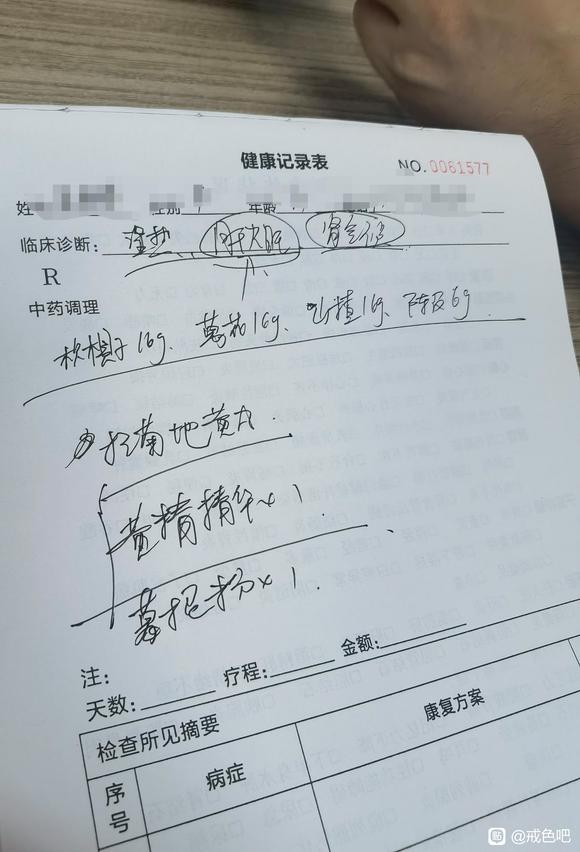 健康记录表 NO.0061577
姓 性别 年龄
临床诊断: 湿热、肝火旺 肾气不足
R
中药调理
枳椇子16g、葛花16g、山楂1g、陈皮6g
杞菊地黄丸
黄精精华×1
×1
注:
天数: 疗程: 金额:
检查所见摘要
序号 病症 康复方案
贴 @戒色吧